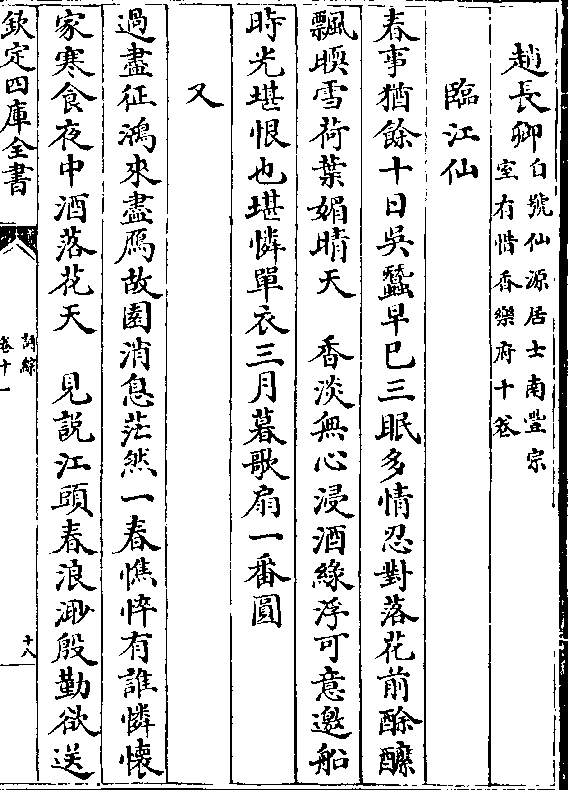 趙長卿自號仙源居士南豐宗
室有惜香樂府十卷
臨江仙
春事猶餘十日吳蠶早已三眠多情忍對落花前酴醾
飄暖雪荷葉媚晴天　香淡無心浸酒綠浮可意邀船
時光堪恨也堪憐單衣三月暮歌扇一番圓
又
過盡征鴻來盡鴈故園消息茫然一春憔悴有誰憐懷
家寒食夜中酒落花天　見說江頭春浪渺殷勤欲送
欽定四庫全書
詞綜
卷十一
十八